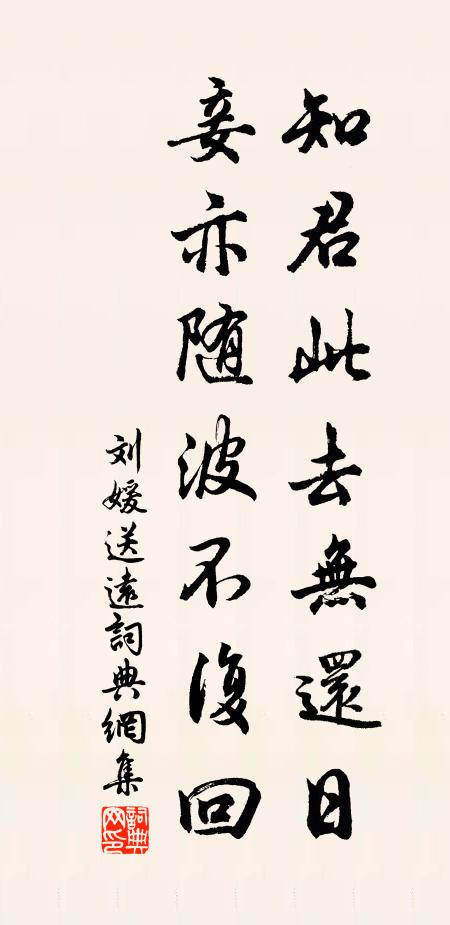 知君此去無還日
妾亦随波不復回
刘媛送遠詞典網集
詞典網印